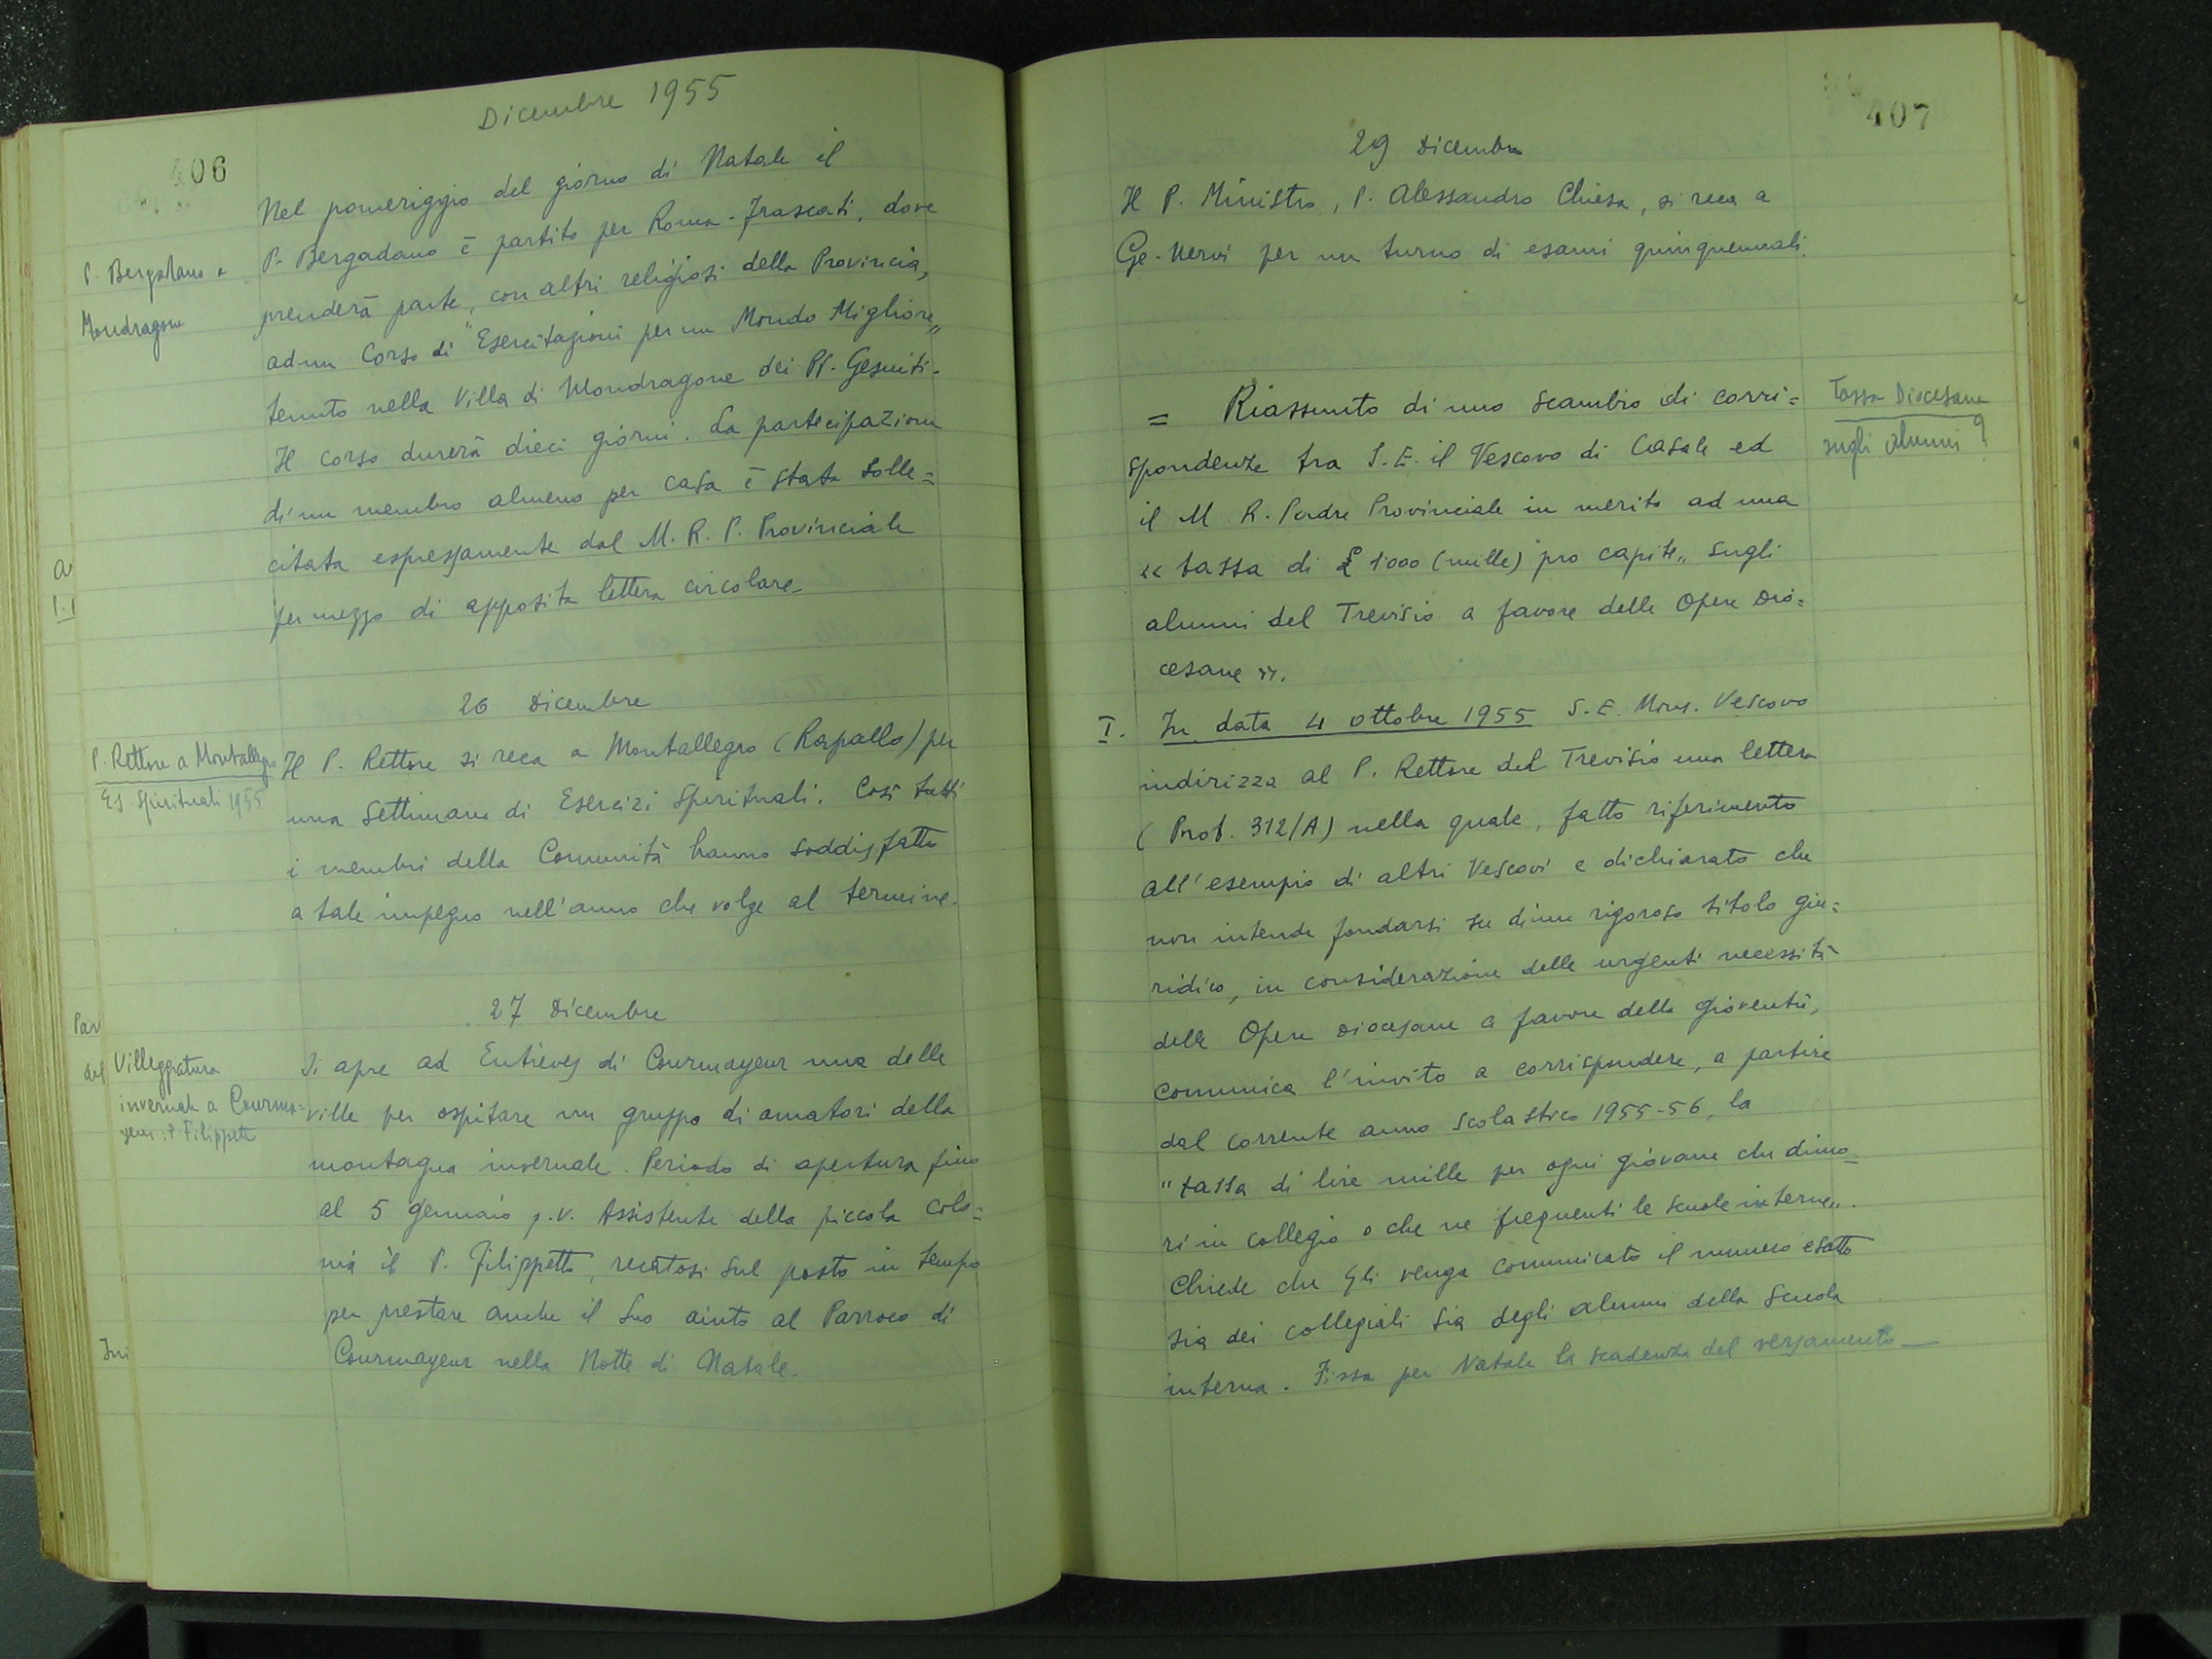 Dicembre 1955
406
Nel pomeriggio del giorno di Natale il
P. Bergadano è partito per Roma-Frascati, dove
prenderà parte, con altri religiosi della Provincia,
ad un Corso di "Esercitazioni per un Mondo Migliore"
tenuto nella Villa di Mondragone dei PP. Gesuiti.
Il corso durerà dieci giorni. La partecipazione
di un membro almeno per casa è stata solle=
citata espressamente dal M. R. P. Provinciale
per mezzo di apposita lettera circolare.
P. Bergadano a
Mondragone
26 Dicembre
P. Rettore a Montallegro
Es Spirituali 1955
Il P. Rettore si reca a Montallegro (Rapallo) per
una Settimana di Esercizi Spirituali. Così tutti
i membri della Comunità hanno soddisfatto
a tale impegno nell'anno che volge al termine.
27 Dicembre
Villeggiatura
invernale a Courma=
yeur: P. Filippetto
Si apre ad Entrèves di Courmayeur una delle
ville per ospitare un gruppo di amatori della
montagna invernale. Periodo di apertura fino
al 5 gennaio p.v. Assistente della piccola colo=
nia il P. Filippetto, recatosi sul posto in tempo
per prestare anche il suo aiuto al Parroco di
Courmayeur nella Notte di Natale.
a
Par
del
407
29 Dicembre
Il P. Ministro, P. Alessandro Chiesa, si reca a
Ge-Nervi per un turno di esami quinquennali.
Tassa Diocesana
sugli alunni?
= Riassunto di uno scambio di corri=
spondenze tra S. E. il Vescovo di Casale ed
il M. R. Padre Provinciale in merito ad una
« tassa di £ 1000 (mille) pro capite „ sugli
alunni del Trevisio a favore delle Opere Dio=
cesane ».
I. In data 4 ottobre 1955 S. E. Mons. Vescovo
indirizza al P. Rettore del Trevisio una lettera
(Prot. 312/A) nella quale, fatto riferimento
all'esempio di altri Vescovi e dichiarato che
non intende fondarsi su di un rigoroso titolo giu=
ridico, in considerazione delle urgenti necessità
delle Opere Diocesane a favore della gioventù,
comunica l'invito a corrispondere, a partire
dal corrente anno scolastico 1955-56, la
"tassa di lire mille per ogni giovane che dimo=
ri in collegio o che ne frequenti le scuole interne".
Chiede che gli venga comunicato il numero esatto
sia dei collegiali sia degli alunni della Scuola
interna. Fissa per Natale la scadenza del versamento